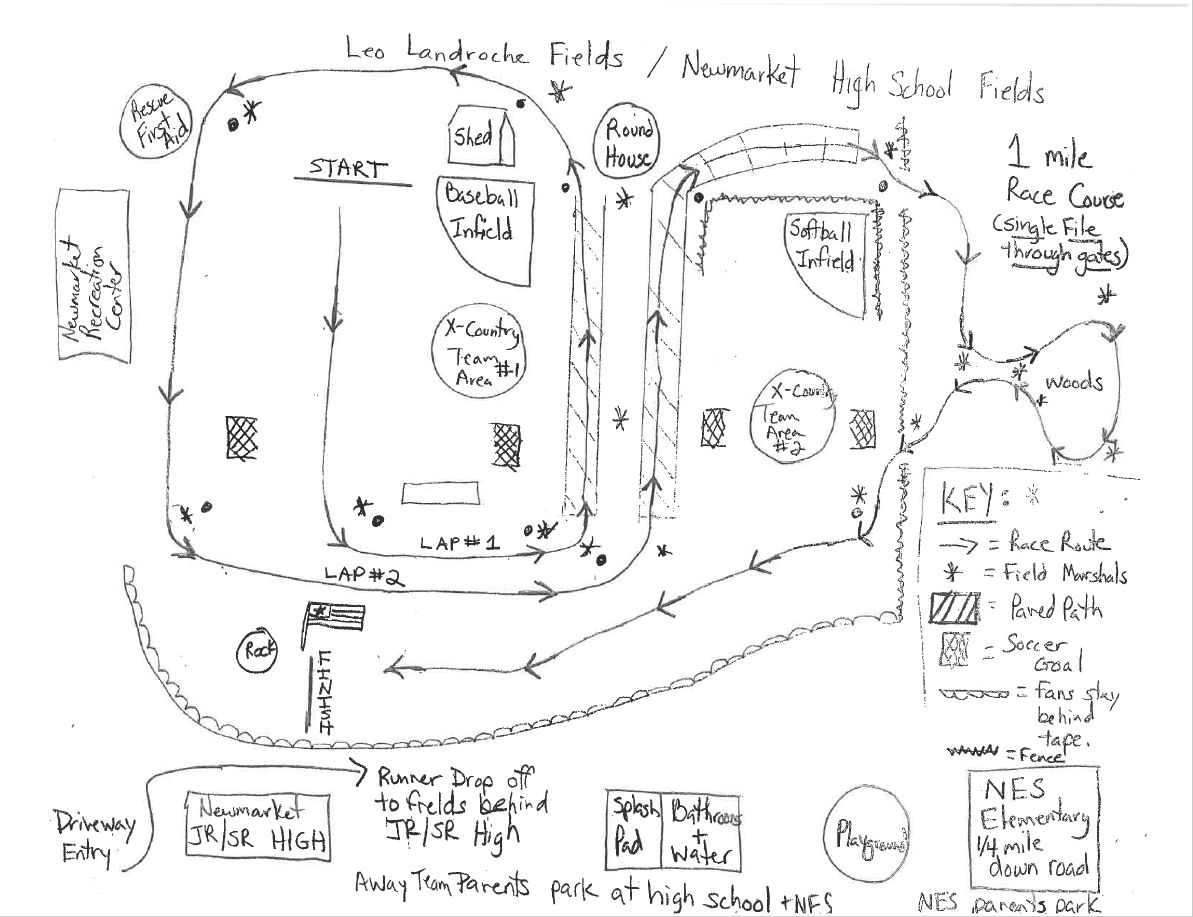 Leo Landroche Fields / Newmarket High School Fields
Rescue
First Aid
Shed
Round
House
START
Baseball
Infield
Softball
Infield
1 mile
Race Course
(single File
through gates)
Newmarket
Recreation
Center
X-Country
Team #1
Area
X-Country
Team
Area
#2
Woods
LAP #1
LAP #2
Rock
FINISH
KEY:
= Race Route
= Field Marshals
= Paved Path
= Soccer
Goal
= Fans stay
behind
tape.
= Fence
Driveway
Entry
Newmarket
JR/SR HIGH
Runner Drop off
to fields behind
JR/SR High
Splash
Pad
Bathrooms
+
Water
Playground
NES
Elementary
1/4 mile
down road
Away Team Parents park at high school + NES
NES parents park